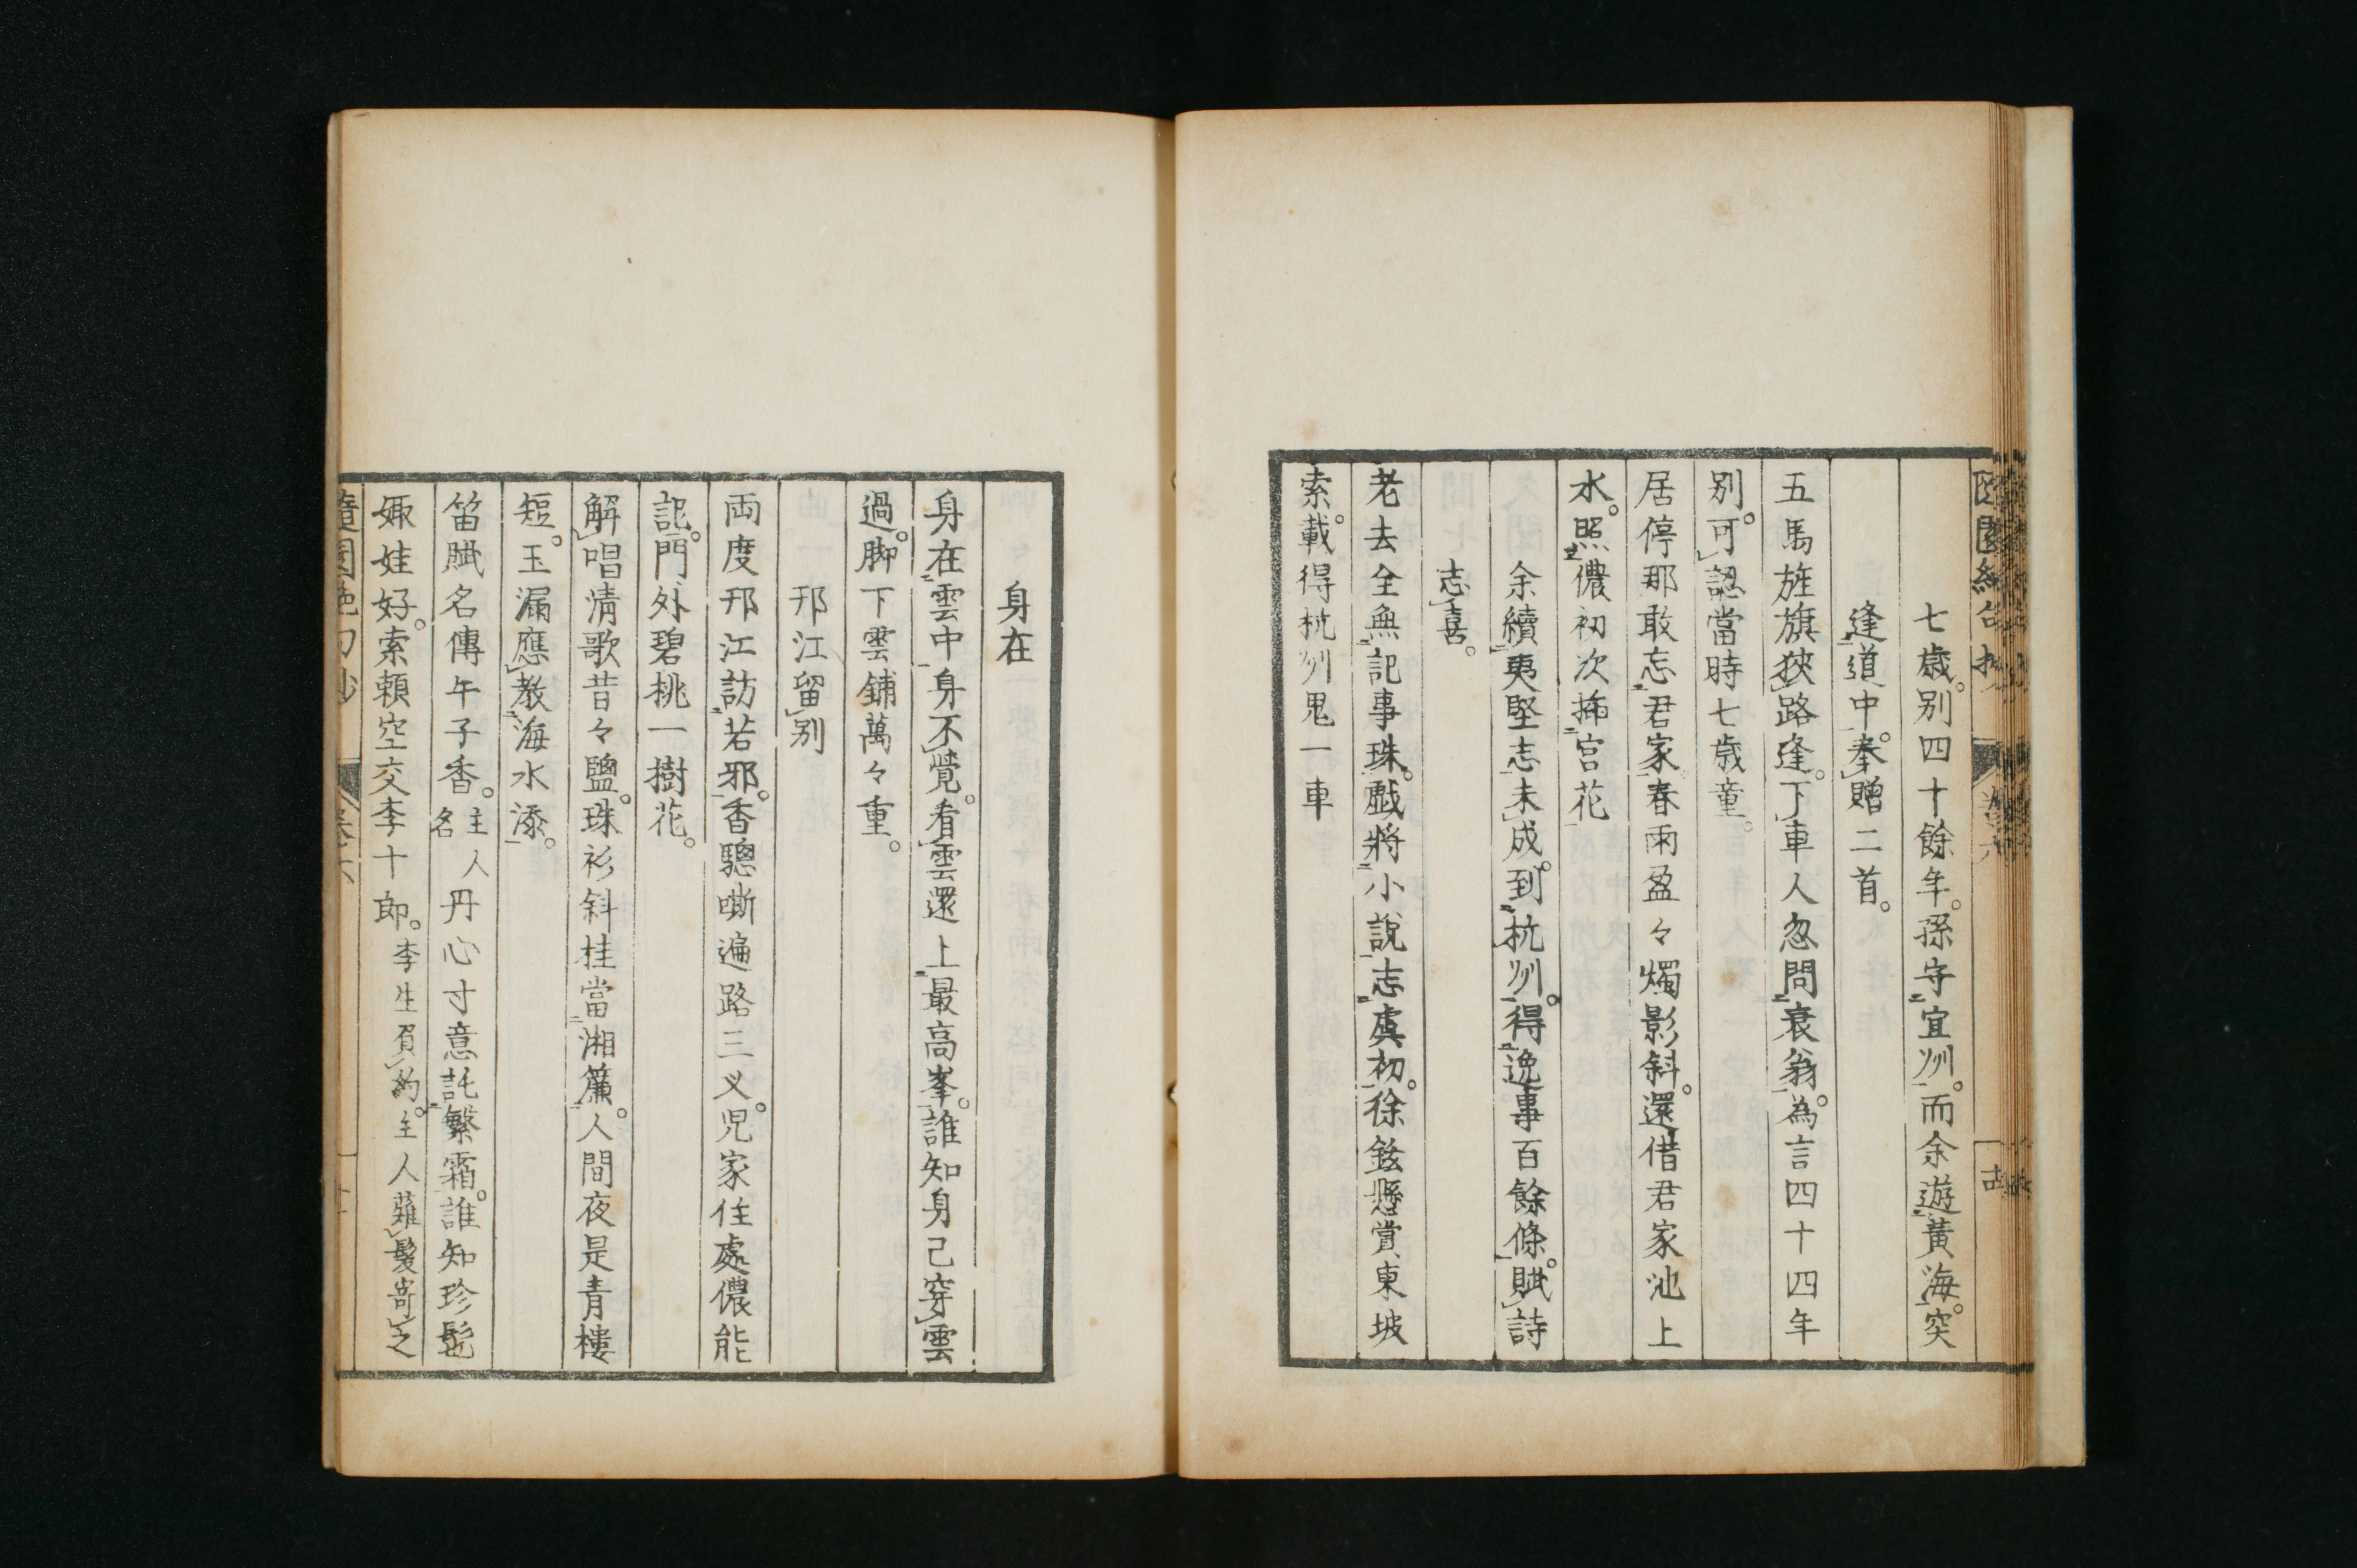 七歳。別四十餘年。孫守宜州。而余遊黃海。突
逢道中。奉贈二首。
五馬旌旗狹路逢。下車人忽問衰翁。為言四十四年
別。可認當時七歳童。
居停那敢忘君家春雨盈々燭影斜。還借君家池上
水。照儂初次揷宮花
余續夷堅志未成。到杭州。得逸事百餘條。賦詩
志喜。
老去全無記事珠。戲將小說志虞初。徐鉉懸賞東坡
索。載得杭州鬼一車
身在
身在雲中身不覺。看雲還上最高峯。誰知身己穿雲
過。脚下雲鋪萬々重。
邗江留別
両度邗江訪若邪。香驄嘶遍路三义。児家住處儂能
記。門外碧桃一樹花。
解唱清歌昔々鹽。珠衫斜桂當湘簾。人間夜是青樓
短。玉漏應教海水添。
笛賦名傳午子香。主人名丹心寸意託繁霜。誰知珍髢
娵娃好。索頼空交李十郎。李生負約。主人薙髮寄之
隨園絶句抄
卷六